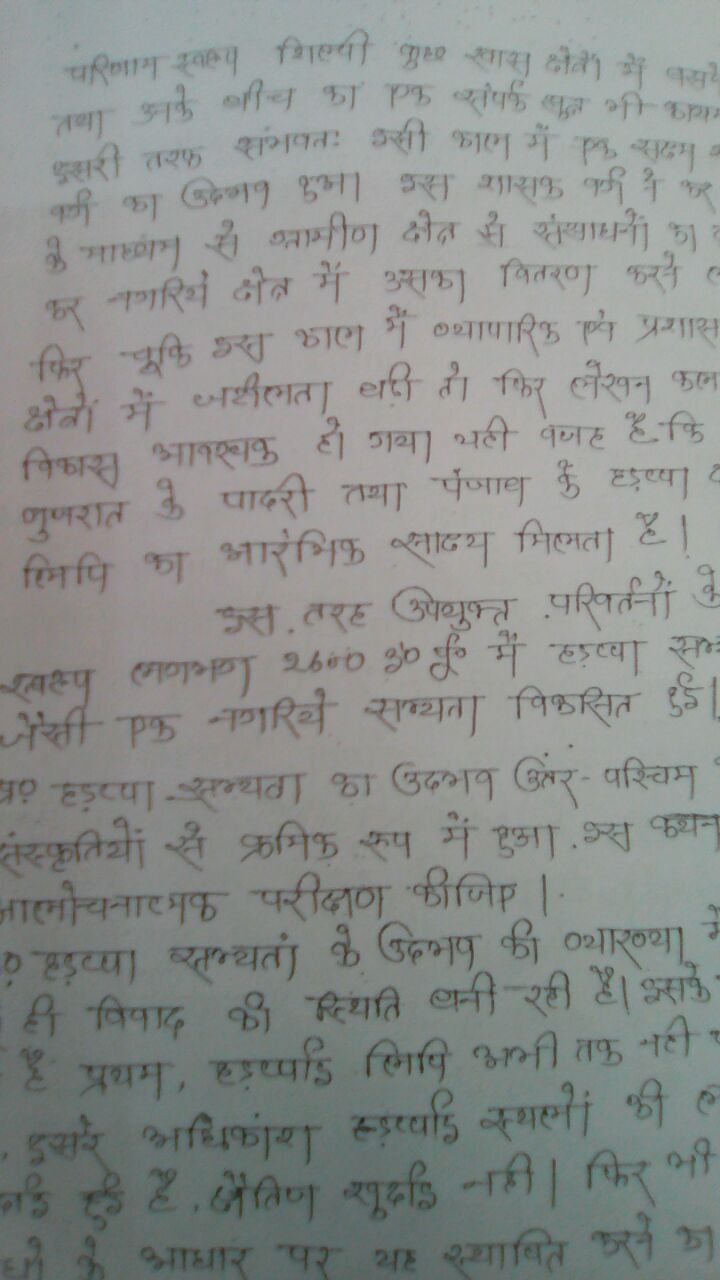 परिणाम स्वरूप शिल्पी कुछ खास क्षेत्रों में बसने
तथा उनके बीच का एक संपर्क सूत्र भी कायम
दुसरी तरफ संभवतः इसी काल में एक सक्षम
वर्ग का उदभव हुआ। इस शासक वर्ग ने कर
के माध्यम से ग्रामीण क्षेत्र से संसाधनों का
कर नगरिय क्षेत्र में उसका वितरण करने
फिर चूकि इस काल में व्यापारिक एवं प्रशास
क्षेत्रों में जटीलता बढी तो फिर लेखन कला
विकास आवश्यक हो गया यही वजह है कि
गुजरात के पादरी तथा पंजाब के हड़प्पा
लिपि का आरंभिक साक्ष्य मिलता है।
इस तरह उपर्युक्त परिवर्तनों के
स्वरूप लगभग 2600 ई० पू० में हड़प्पा सभ्य
जैसी एक नगरिये सभ्यता विकसित हुई।
प्र० हड़प्पा सभ्यता का उदभव उत्तर-पश्चिम
संस्कृतियों से क्रमिक रूप में हुआ. इस कथन
आलोचनात्मक परीक्षण कीजिए।
हड़प्पा सभ्यता के उदभव की व्याख्या में
ही विवाद की स्थिति बनी रही है। इसके
है प्रथम, हड़प्पाई लिपि अभी तक नही
, दुसरे अधिकांश हड़प्पाई स्थलों की
हुई है, क्षैतिज खुदाई नही। फिर भी
के आधार पर यह स्थापित करने का